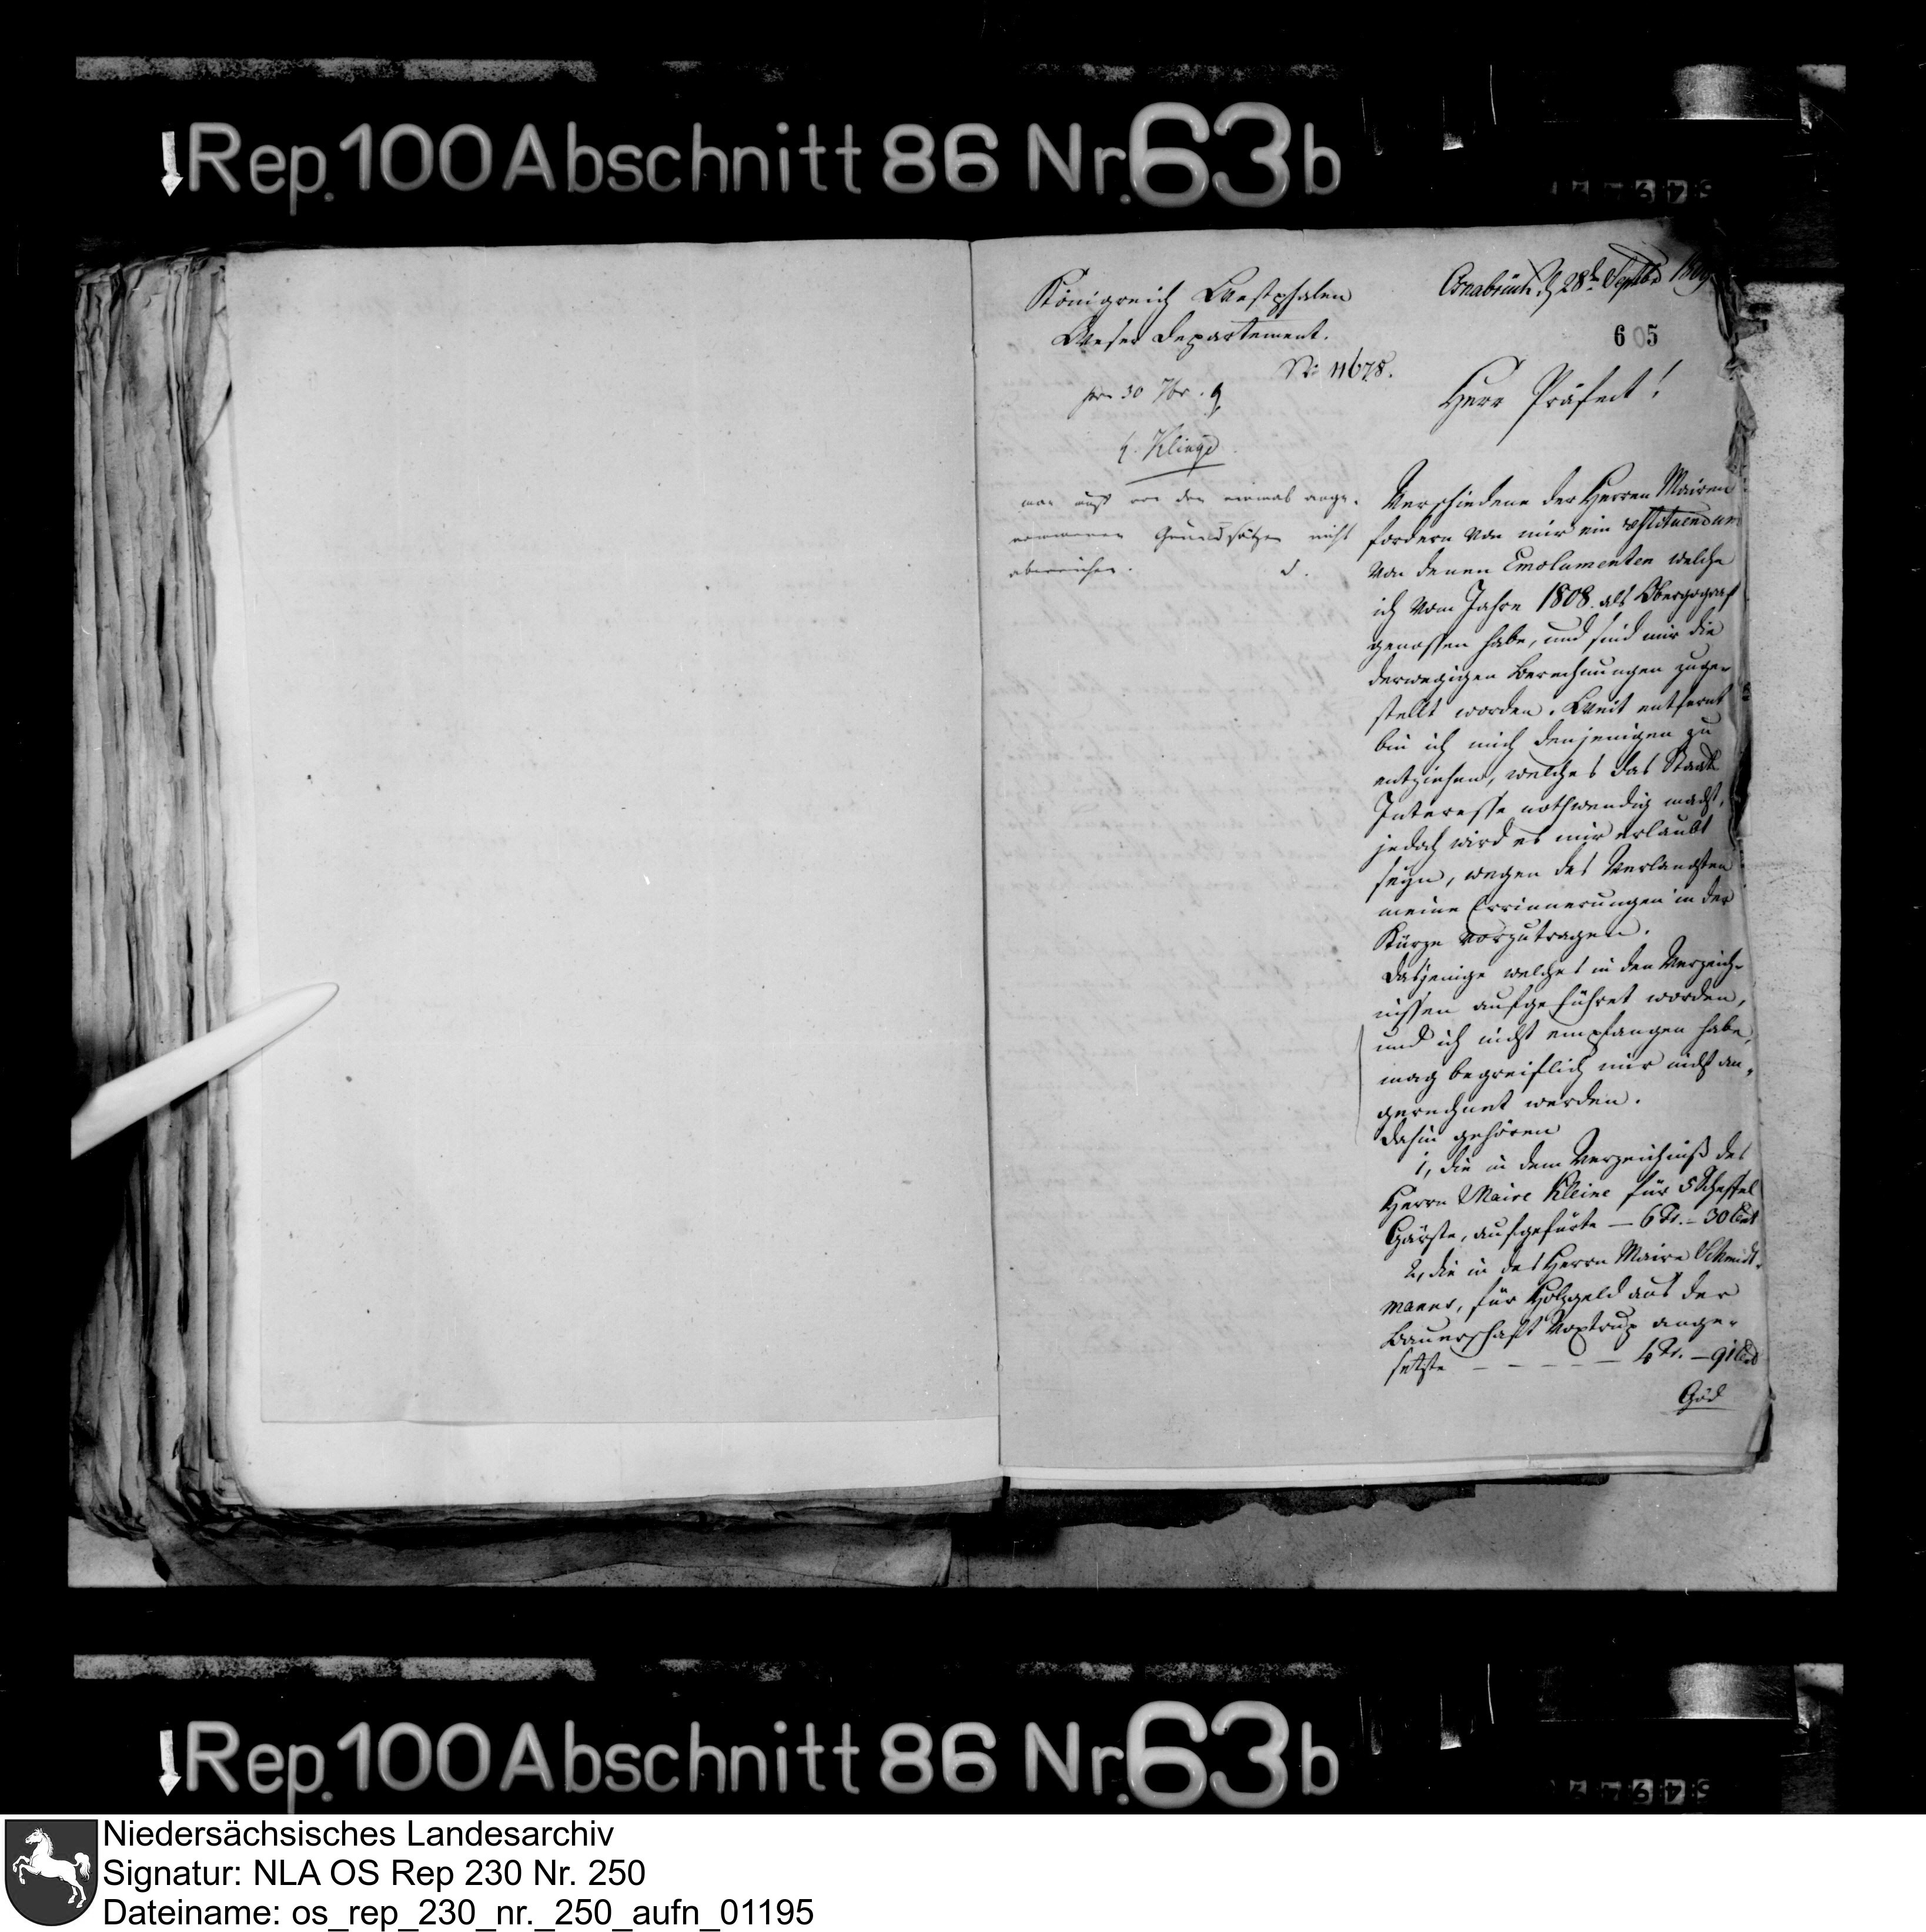 Rep. 100 Abschnitt 86 Nr. 63b
Königreich Westphalen
Weser Departement.
Osnabrück d 28t Septbr 1809
605
No 11678.
30 7br. 9
Herr Präfect!
Kling
man von den einmal ange-
nommenen Grundsätzen nicht
abweichen.
Verschiedene der Herren Mairen
fordern von mir ein restituendum
von denen Emolumenten welche
ich vom Jahre 1808. als Obergograf
genossen habe, und sind mir die
derwegigen Berechnungen zuge-
stellt worden. Weit entfernt
bin ich mich denjenigen zu
entziehen, welches das Staats
Interesse nothwendig macht,
jedoch wird es mir erlaubt
seyn, wegen des Verlangten
meine Errinnerungen in der
Kürze vorzutragen.
Dasjenige welches in den Verzeich-
nissen aufgeführet worden,
und ich nicht empfangen habe,
mag begreiflich mir nicht an-
gerechnet werden.
Dahin gehören
1, die in dem Verzeichniß des
Herrn Maire Kleine für 5 Scheffel
Gärste, aufgefürte — 6 Fr. – 30 Cent
2, die in des Herrn Maire Schmidt-
mann, für Holzgeld aus der
Bauerschaft Voxtrup ange-
setzte — — — — — 4 Fr. — 91 Cent
Rep. 100 Abschnitt 86 Nr. 63b
Niedersächsisches Landesarchiv
Signatur: NLA OS Rep 230 Nr. 250
Dateiname: os_rep_230_nr._250_aufn_01195